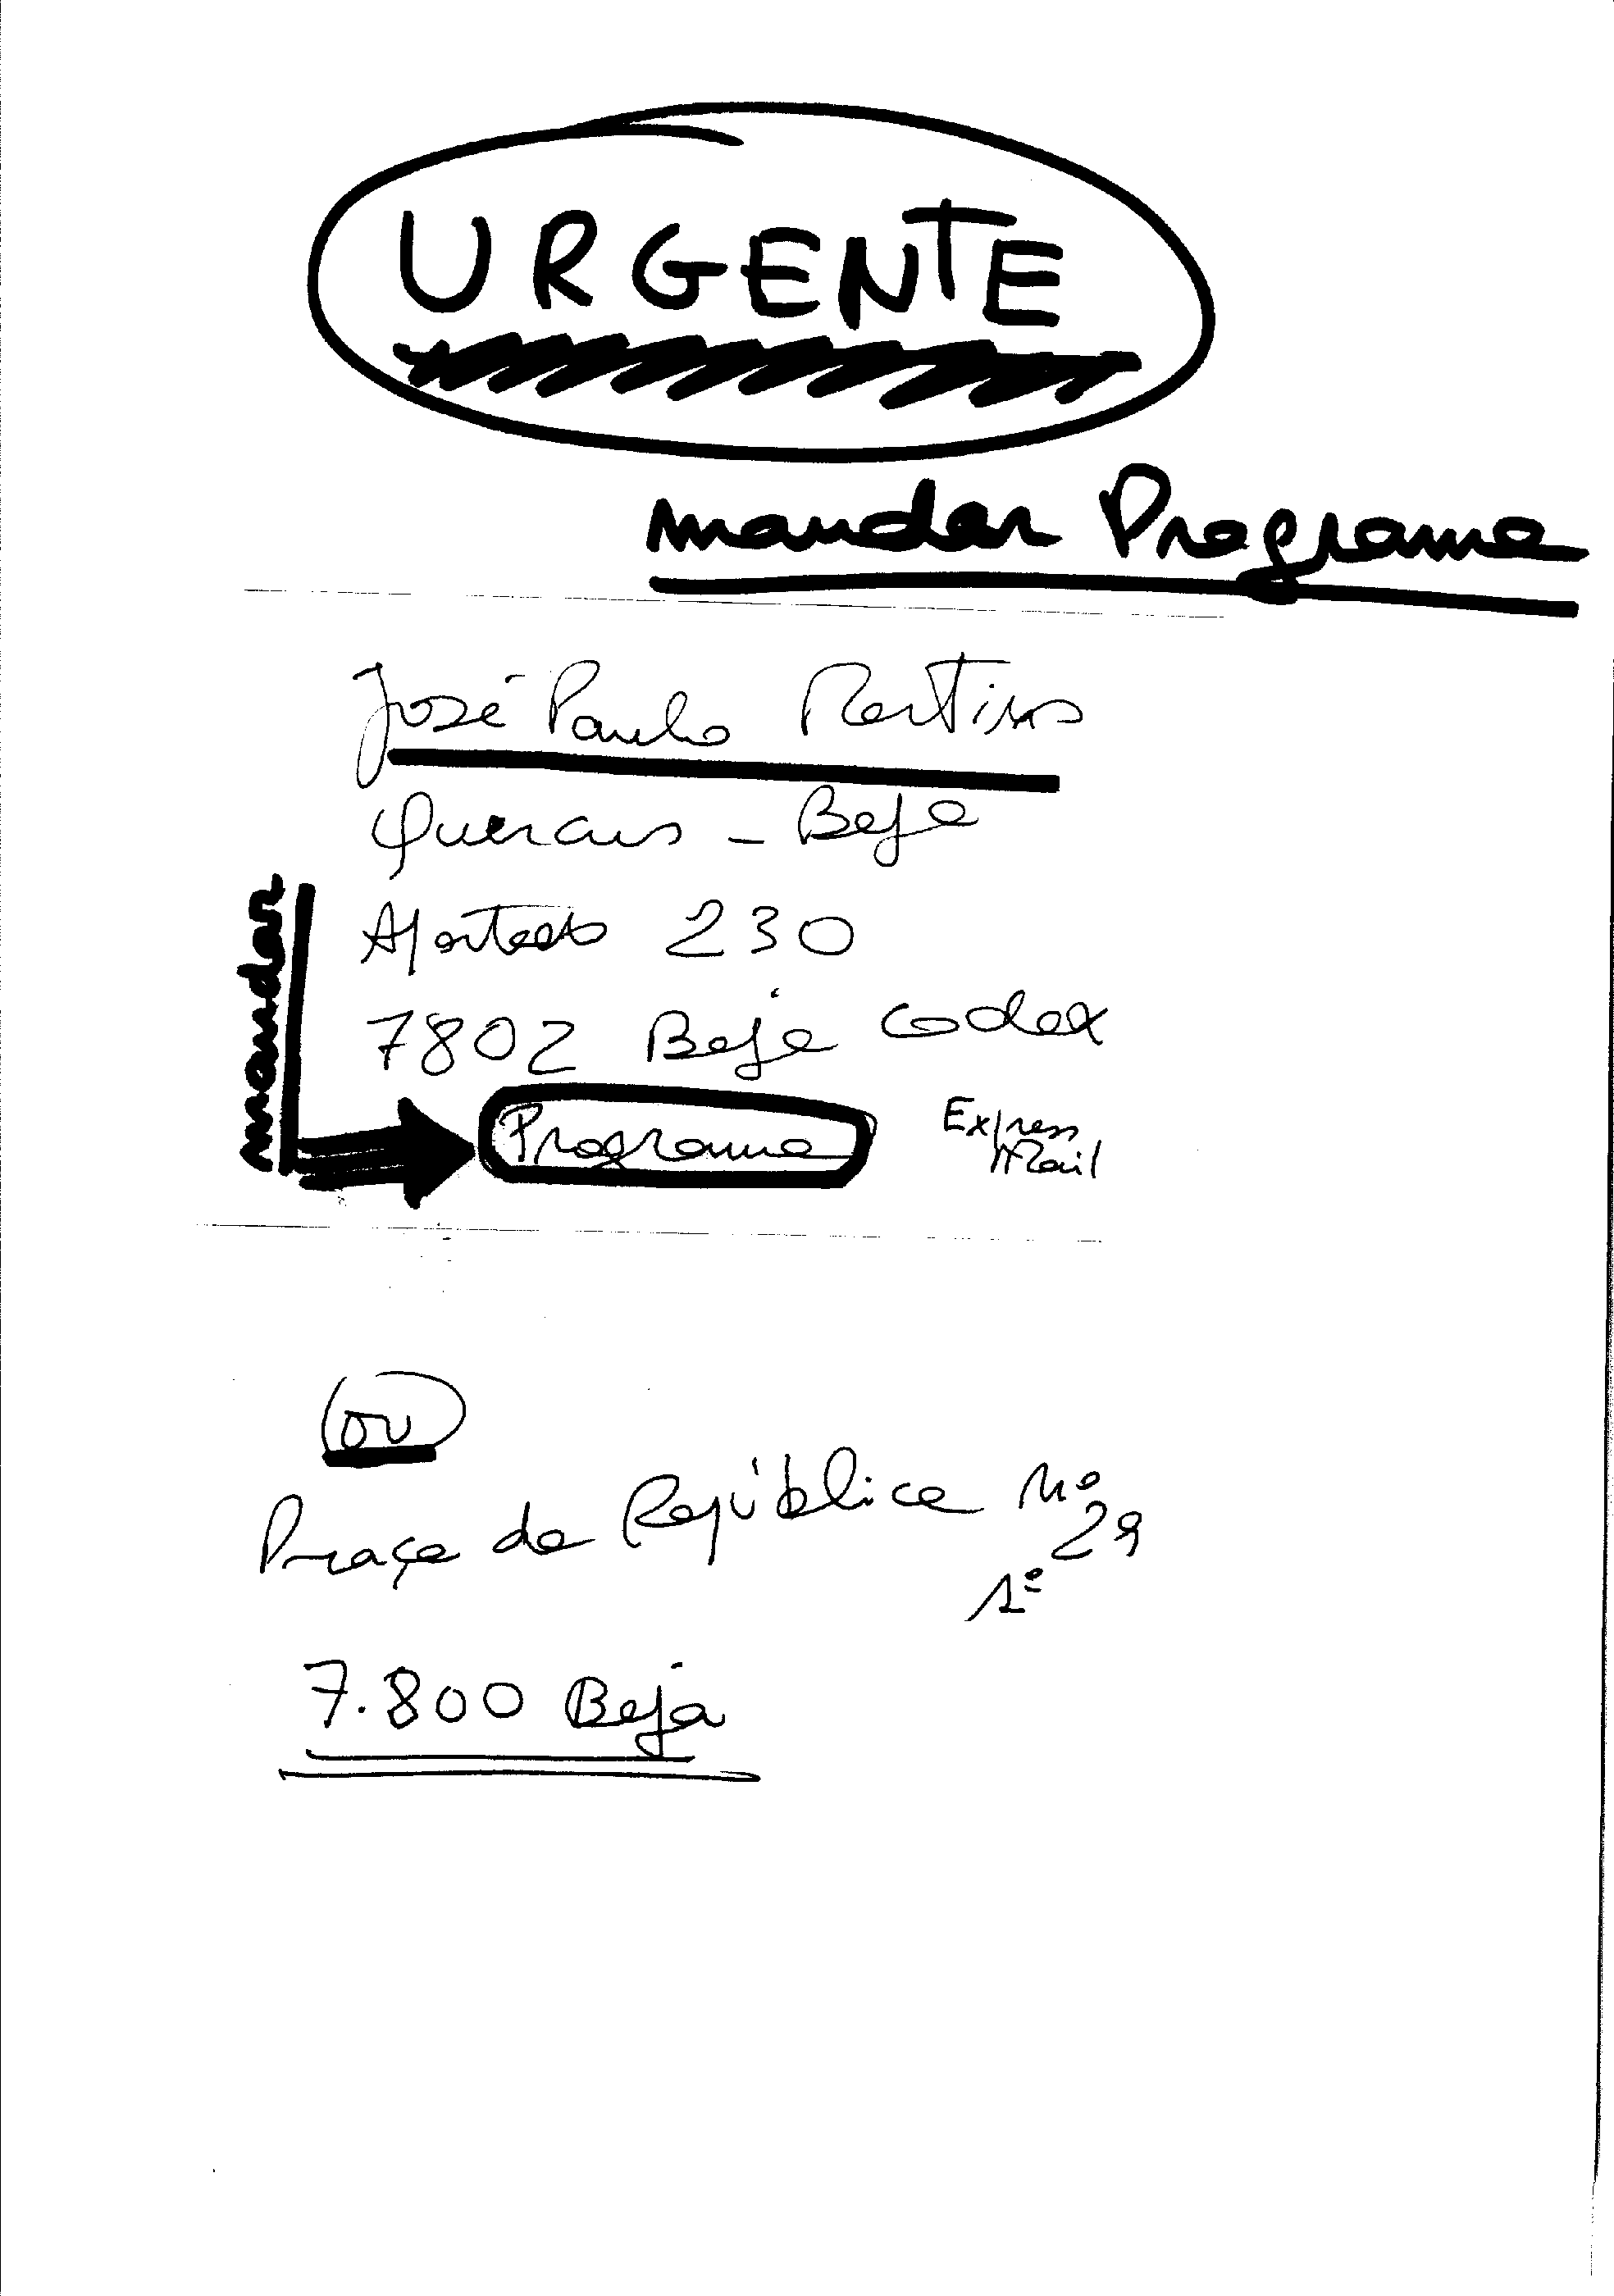 URGENTE
mandar Programa
José Paulo Martins
Quercus - Beja
Apartado 230
7802 Beja codex
mandar
Programa
Express
Mail
ou
Praça da República nº
29
1º
7.800 Beja